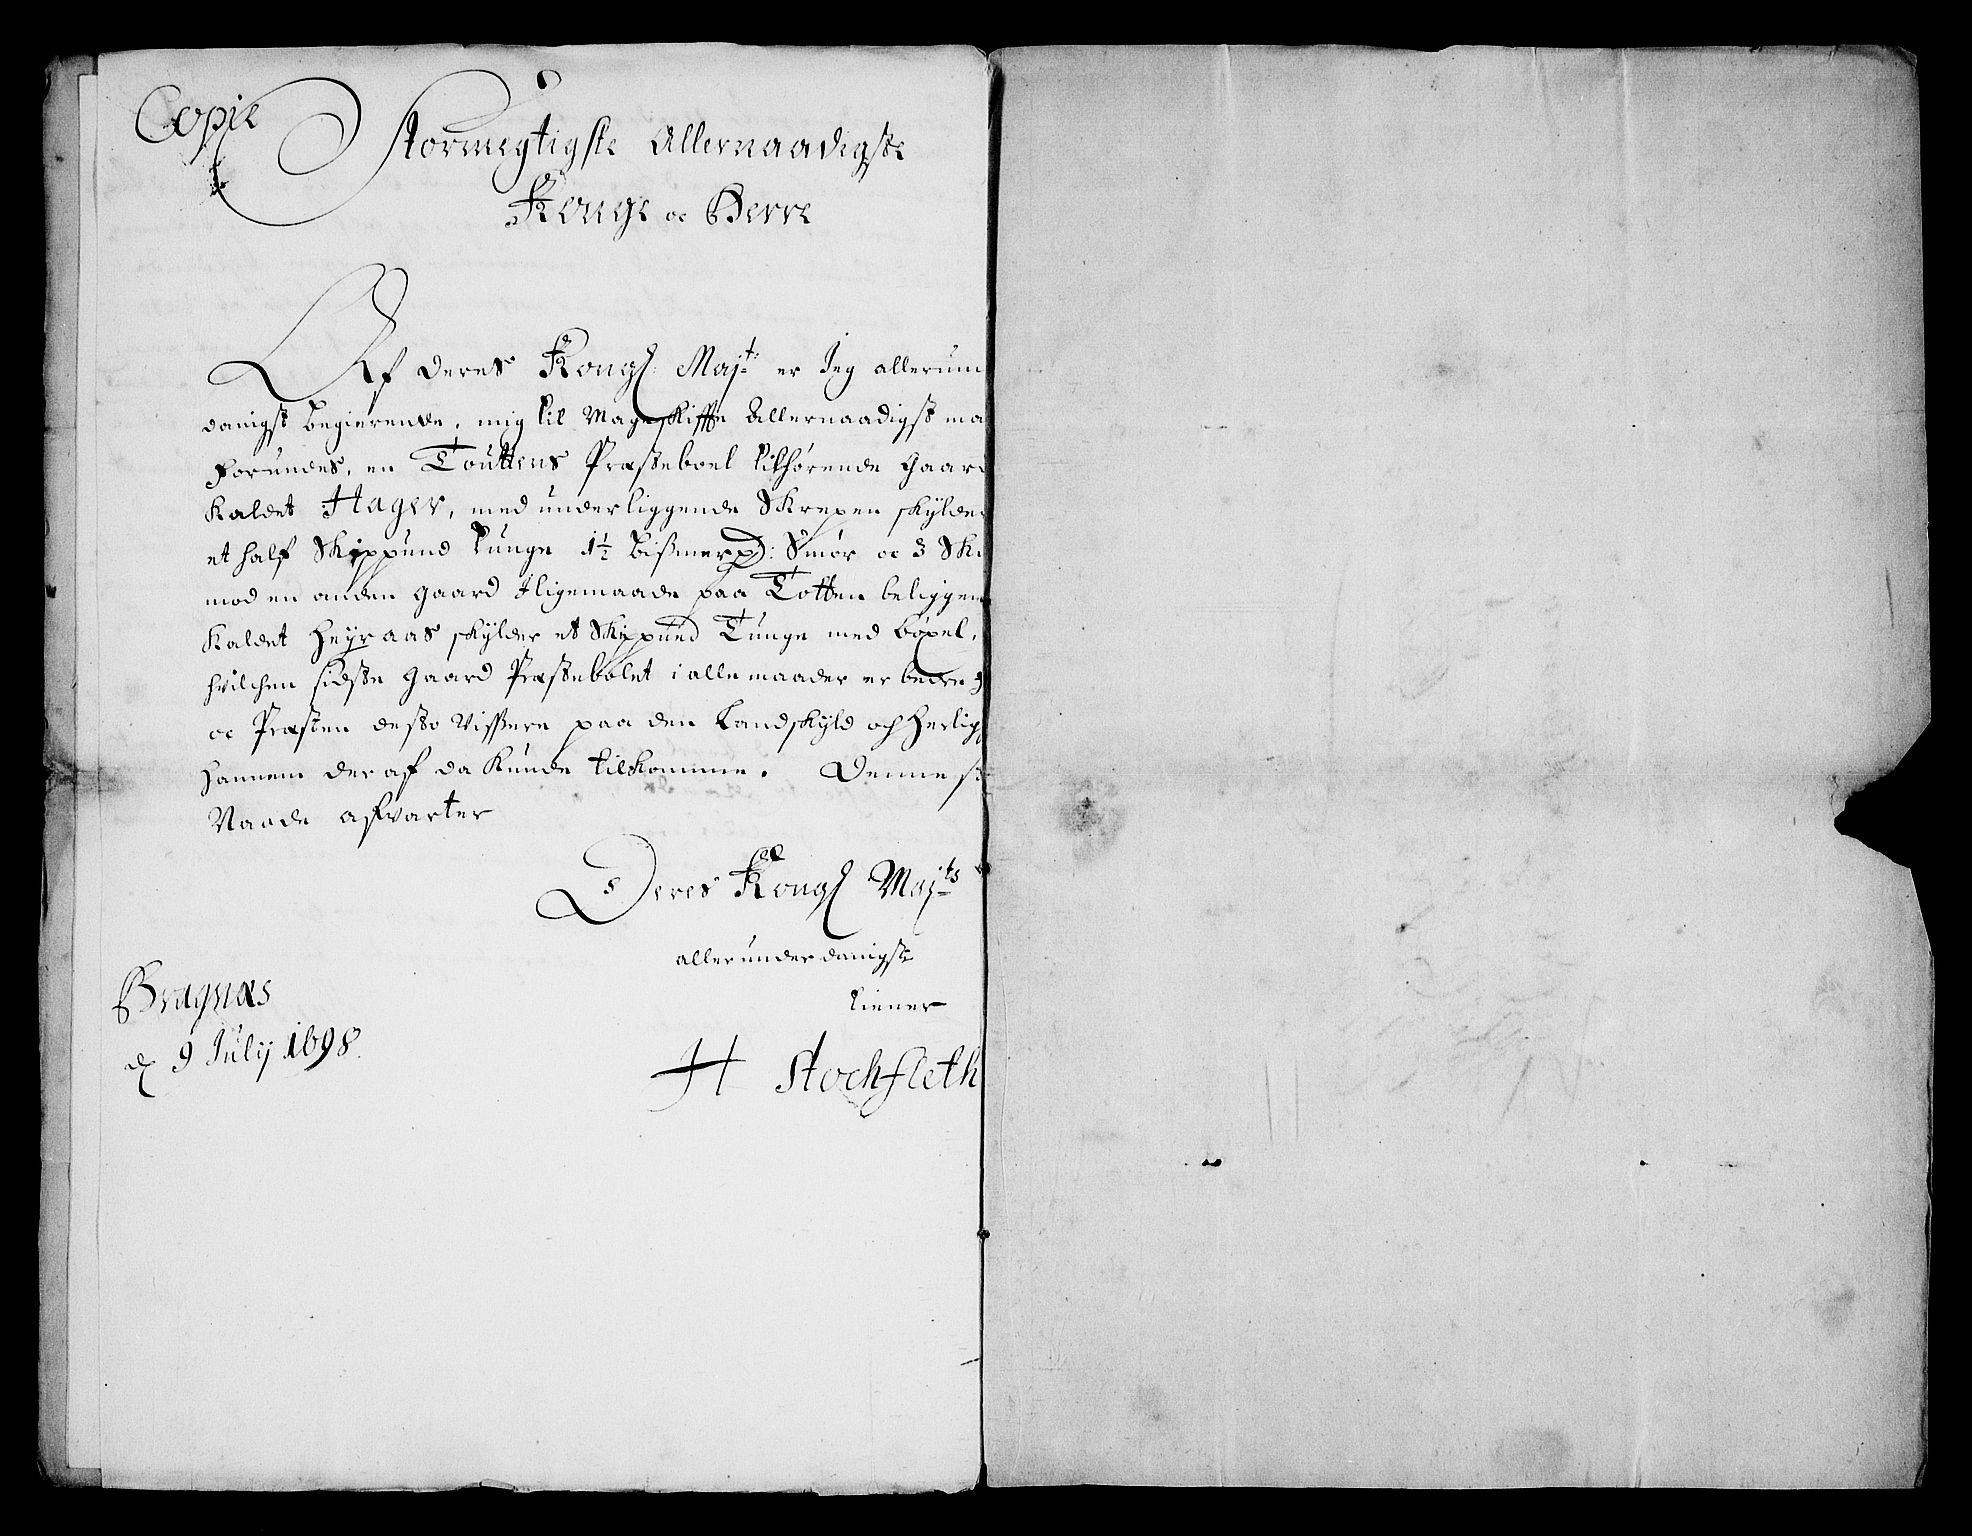 Copie
Stormegtigste Allernaadigste
Konge oc Herre
Af Deres Kongl: Majt: er Jeg allerun
danigst begierende, mig til Mageskiffte Allernaadigst ma
forundes, en Touttens Præsteboel tilhørende Gaard
kaldet Hager, med underliggende Skrepen skylder
et half Skippund tunge 1½ Bißmerpd: Smør oc 3 Ski
mod en anden gaard Jligemaade paa Totten beliggen
kaldet Heyraas skylder et Skippund Tunge med bøxel,
hvilchen sidste gaard Præstebolet i alle maader er bedre
oc Præsten desto Vissere paa den Landskyld och Herlig
hannem deraf da kunde tilkomme. Denne st
Naade afvarter
Deres Kongl Majts
allerunderdanigste
tiener
Bragnæs
d 9 July 1698.
H Stochfleth